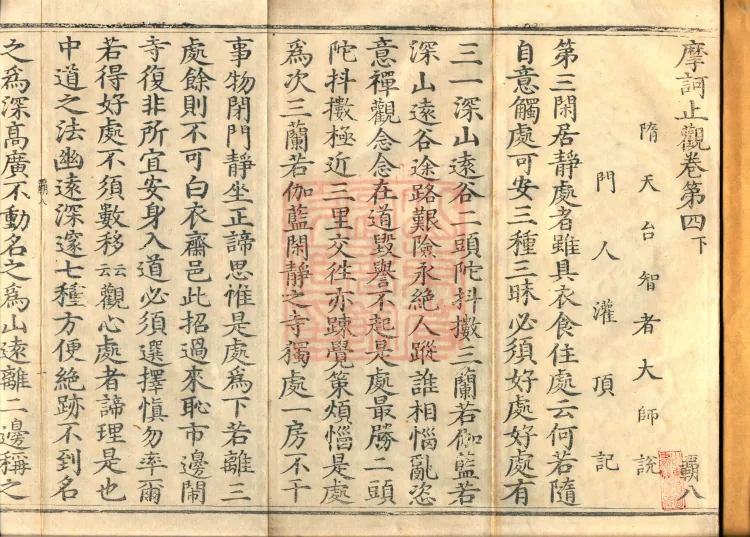 摩訶止觀卷第四下
隋天台智者大師說
霸八
門人灌頂記
第三閑居靜處者雖具衣食住處云何若隨
自意觸處可安三種三昧必須好處好處有
三一深山遠谷二頭陀抖擻三蘭若伽藍若
深山遠谷途路艱險永絕人蹤誰相惱亂恣
意禪觀念念在道毀譽不起是處最勝二頭
陀抖擻極近三里交徃亦踈覺策煩惱是處
為次三蘭若伽藍閑靜之寺獨處一房不干
事物閉門靜坐正諦思惟是處為下若離三
處餘則不可白衣齋邑此招過來恥市邊鬧
寺復非所宜安身入道必須選擇愼勿率爾
若得好處不須數移云云觀心處者諦理是也
霸八
中道之法幽遠深邃七種方便絕跡不到名
之為深高廣不動名之為山遠離二邊稱之